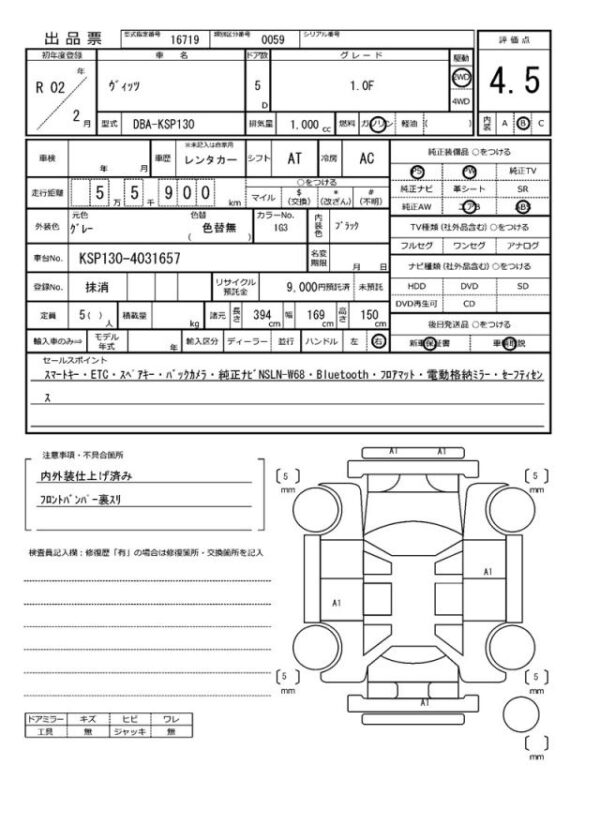 出品票 型式指定番号 16719 類別区分番号 0059 シリアル番号
評価点
初年度登録 車名 ドア数 グレード 駆動
R 02 年 ヴィッツ 5 D 1.0F 2WD 4WD
4.5
2月 型式 DBA-KSP130 排気量 1,000 cc 燃料 ガソリン 軽油 ( )
内装 A B C
車検 年 月 車歴 ※未記入は自家用 レンタカー シフト AT 冷房 AC
純正装備品 ○をつける
PS PW 純正TV
走行距離 5万 5千 900 km ○をつける
マイル $ (交換) * (改ざん) # (不明)
純正ナビ 革シート SR
純正AW エアB ABS
外装色 元色 グレー 色替 ( 色替無 ) カラーNo. 1G3 内装色 ブラック
TV種類(社外品含む) ○をつける
フルセグ ワンセグ アナログ
車台No. KSP130-4031657 名変期限 月 日
ナビ種類(社外品含む) ○をつける
登録No. 抹消 リサイクル預託金 9,000円預託済 未預託
HDD DVD SD
DVD再生可 CD
定員 5( )人 積載量 kg 諸元 長さ 394 cm 幅 169 cm 高さ 150 cm
後日発送品 ○をつける
輸入車のみ⇒ モデル年式 年 輸入区分 ディーラー 並行 ハンドル 左 右
新車保証書 車輌取説
セールスポイント
スマートキー・ETC・スペアキー・バックカメラ・純正ナビNSLN-W68・Bluetooth・フロアマット・電動格納ミラー・セーフティセン
ス
注意事項・不具合箇所
内外装仕上げ済み
フロントバンパー裏スリ
検査員記入欄：修復歴「有」の場合は修復箇所・交換箇所を記入
A1 A1
5 mm
5 mm
A1
A1
5 mm
5 mm
A1
mm
ドアミラー キズ ヒビ ワレ
工具 無 ジャッキ 無